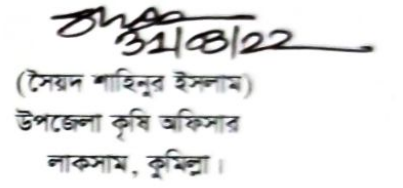 ৩১/০৩/২২
(সৈয়দ শাহিনুর ইসলাম)
উপজেলা কৃষি অফিসার
লাকসাম, কুমিল্লা।